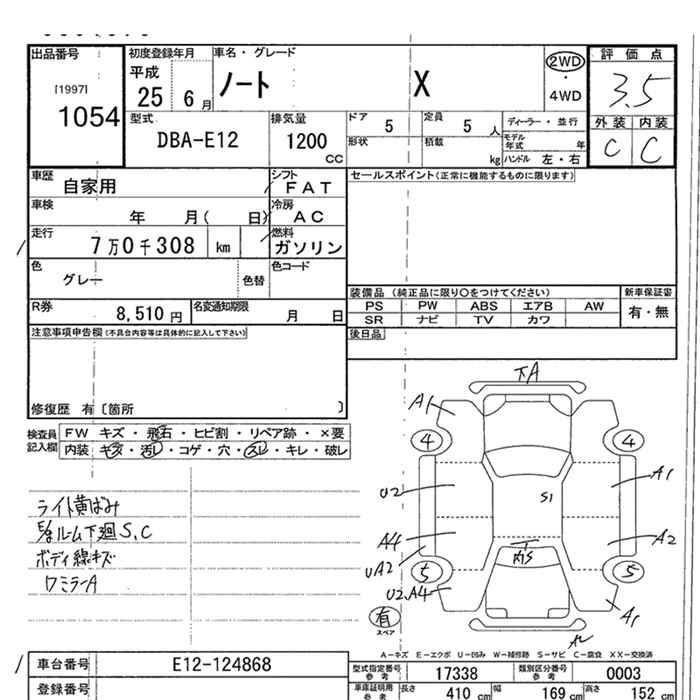 出品番号 初度登録年月 車名・グレード
[1997]
1054
平成
25 6月
ノート X
2WD
・
4WD
評価点
3.5
外装 内装
C C
型式 排気量 ドア 定員 ディーラー・並行
DBA-E12 1200 cc 5 5人
形状 積載 kg モデル年式 年
ハンドル 左・右
車歴 自家用 シフト FAT
セールスポイント(正常に機能するものに限ります)
車検 年 月( 日) 冷房 AC
走行 7万0千308 km 燃料 ガソリン
色 グレー 色替 色コード
R券 8,510円 名変通知期限 月 日
装備品 (純正品に限り○をつけてください) 新車保証書
PS PW ABS エアB AW 有・無
SR ナビ TV カワ
注意事項申告欄(不具合内容等は具体的に記入して下さい) 後日品
修復歴 有〔箇所 〕
検査員 FW キズ・飛石・ヒビ割・リペア跡・×要
記入欄 内装 キズ・汚レ・コゲ・穴・スレ・キレ・破レ
ライト黄ばみ
ルーム下廻S.C
ボディ線キズ
ワミラーA
下A
A1
4 4
U2 S1 A1
A4 A2
UA2
5 5
U2.A4 A1
有
スペア
A
A-キズ E-エクボ U-凹み W-補修跡 S-サビ C-腐食 XX-交換済
車台番号 E12-124868 型式指定番号 17338 類別区分番号 0003
参考 参考
登録番号 車庫証明用 長さ 410 cm 幅 169 cm 高さ 152 cm
参考